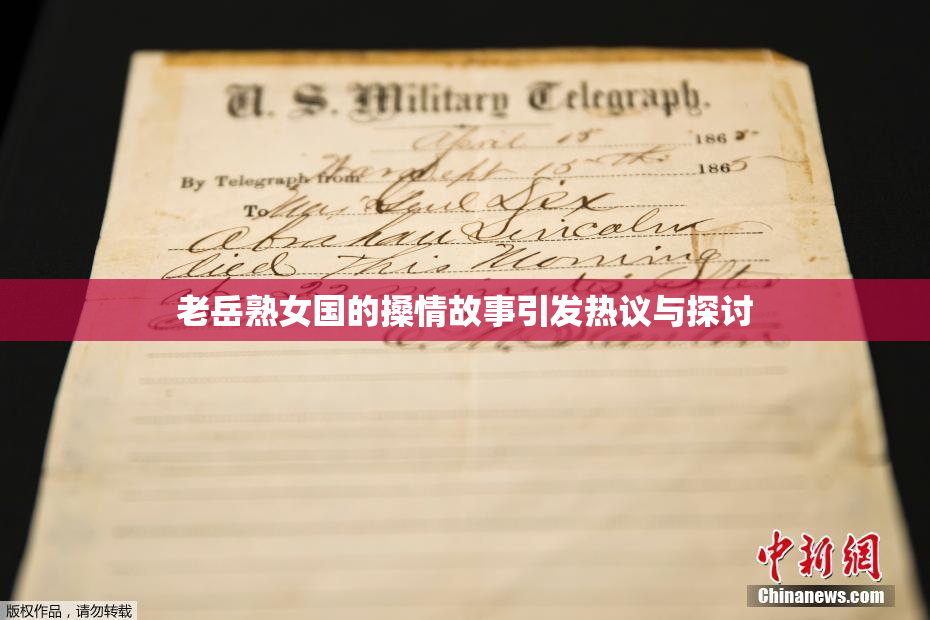 U. S. Military Telegraph.
April 15 1865
By Telegraph from War Dept 15th 1865
To Maj Genl Dix
Abraham Lincoln
died This Morning
at 22 minutes after
老岳熟女国的搡情故事引发热议与探讨
中新网
Chinanews.com
版权作品，请勿转载